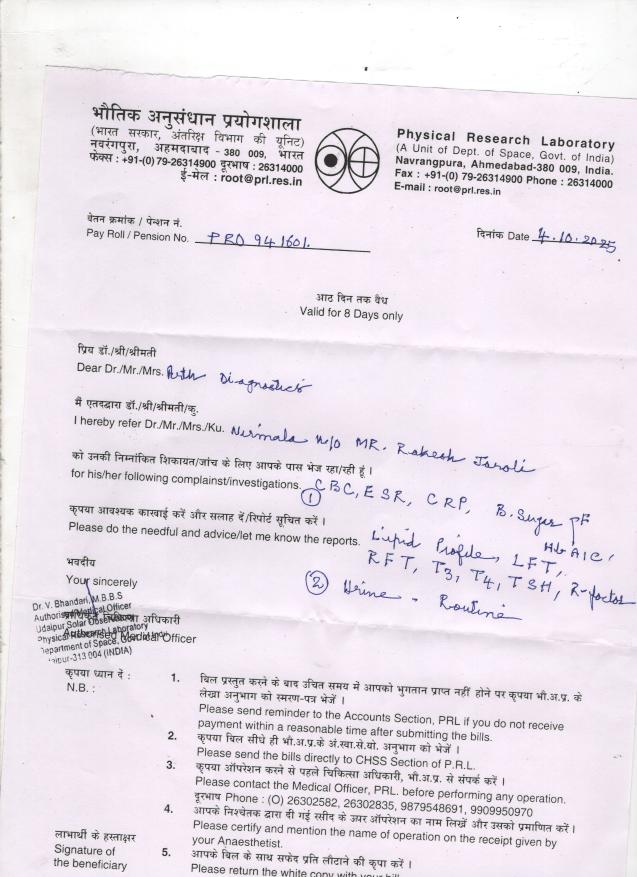 भौतिक अनुसंधान प्रयोगशाला
(भारत सरकार, अंतरिक्ष विभाग की यूनिट)
नवरंगपुरा, अहमदाबाद - 380 009, भारत
फेक्स : +91-(0) 79-26314900 दूरभाष : 26314000
ई-मेल : root@prl.res.in
Physical Research Laboratory
(A Unit of Dept. of Space, Govt. of India)
Navrangpura, Ahmedabad-380 009, India.
Fax : +91-(0) 79-26314900 Phone : 26314000
E-mail : root@prl.res.in
वेतन क्रमांक / पेन्शन नं.
Pay Roll / Pension No. PRO 941601.
दिनांक Date 4.10.2025
आठ दिन तक वैध
Valid for 8 Days only
प्रिय डॉ./श्री/श्रीमती
Dear Dr./Mr./Mrs. Arth Diagnostics
मैं एतदद्वारा डॉ./श्री/श्रीमती/कु.
I hereby refer Dr./Mr./Mrs./Ku. Nirmala w/o MR. Rakesh Jaroli
को उनकी निम्नांकित शिकायत/जांच के लिए आपके पास भेज रहा/रही हूं ।
for his/her following complainst/investigations. (1) CBC, ESR, CRP, B. Sugar PF
HbA1C,
कृपया आवश्यक कारवाई करें और सलाह दें/रिपोर्ट सूचित करें ।
Please do the needful and advice/let me know the reports. Lipid Profile, LFT,
RFT, T3, T4, TSH, R-factor
(2) Urine - Routine
भवदीय
Your sincerely
Dr. V. Bhandari, M.B.B.S
Authorised Medical Officer
Udaipur Solar Observatory
Physical Research Laboratory
Department of Space, Govt. of India
Udaipur-313 004 (INDIA)
प्राधिकृत चिकित्सा अधिकारी
Authorised Medical Officer
कृपया ध्यान दें :
N.B. :
1. बिल प्रस्तुत करने के बाद उचित समय में आपको भुगतान प्राप्त नहीं होने पर कृपया भौ.अ.प्र. के
लेखा अनुभाग को स्मरण-पत्र भेजें ।
Please send reminder to the Accounts Section, PRL if you do not receive
payment within a reasonable time after submitting the bills.
2. कृपया बिल सीधे ही भौ.अ.प्र.के अं.स्वा.से.यो. अनुभाग को भेजें ।
Please send the bills directly to CHSS Section of P.R.L.
3. कृपया ऑपरेशन करने से पहले चिकित्सा अधिकारी, भौ.अ.प्र. से संपर्क करें ।
Please contact the Medical Officer, PRL. before performing any operation.
दूरभाष Phone : (O) 26302582, 26302835, 9879548691, 9909950970
4. आपके निश्चेतक द्वारा दी गई रसीद के उपर ऑपरेशन का नाम लिखें और उसको प्रमाणित करें ।
Please certify and mention the name of operation on the receipt given by
your Anaesthetist.
लाभार्थी के हस्ताक्षर
Signature of
the beneficiary
5. आपके बिल के साथ सफेद प्रति लौटाने की कृपा करें ।
Please return the white copy with your bill